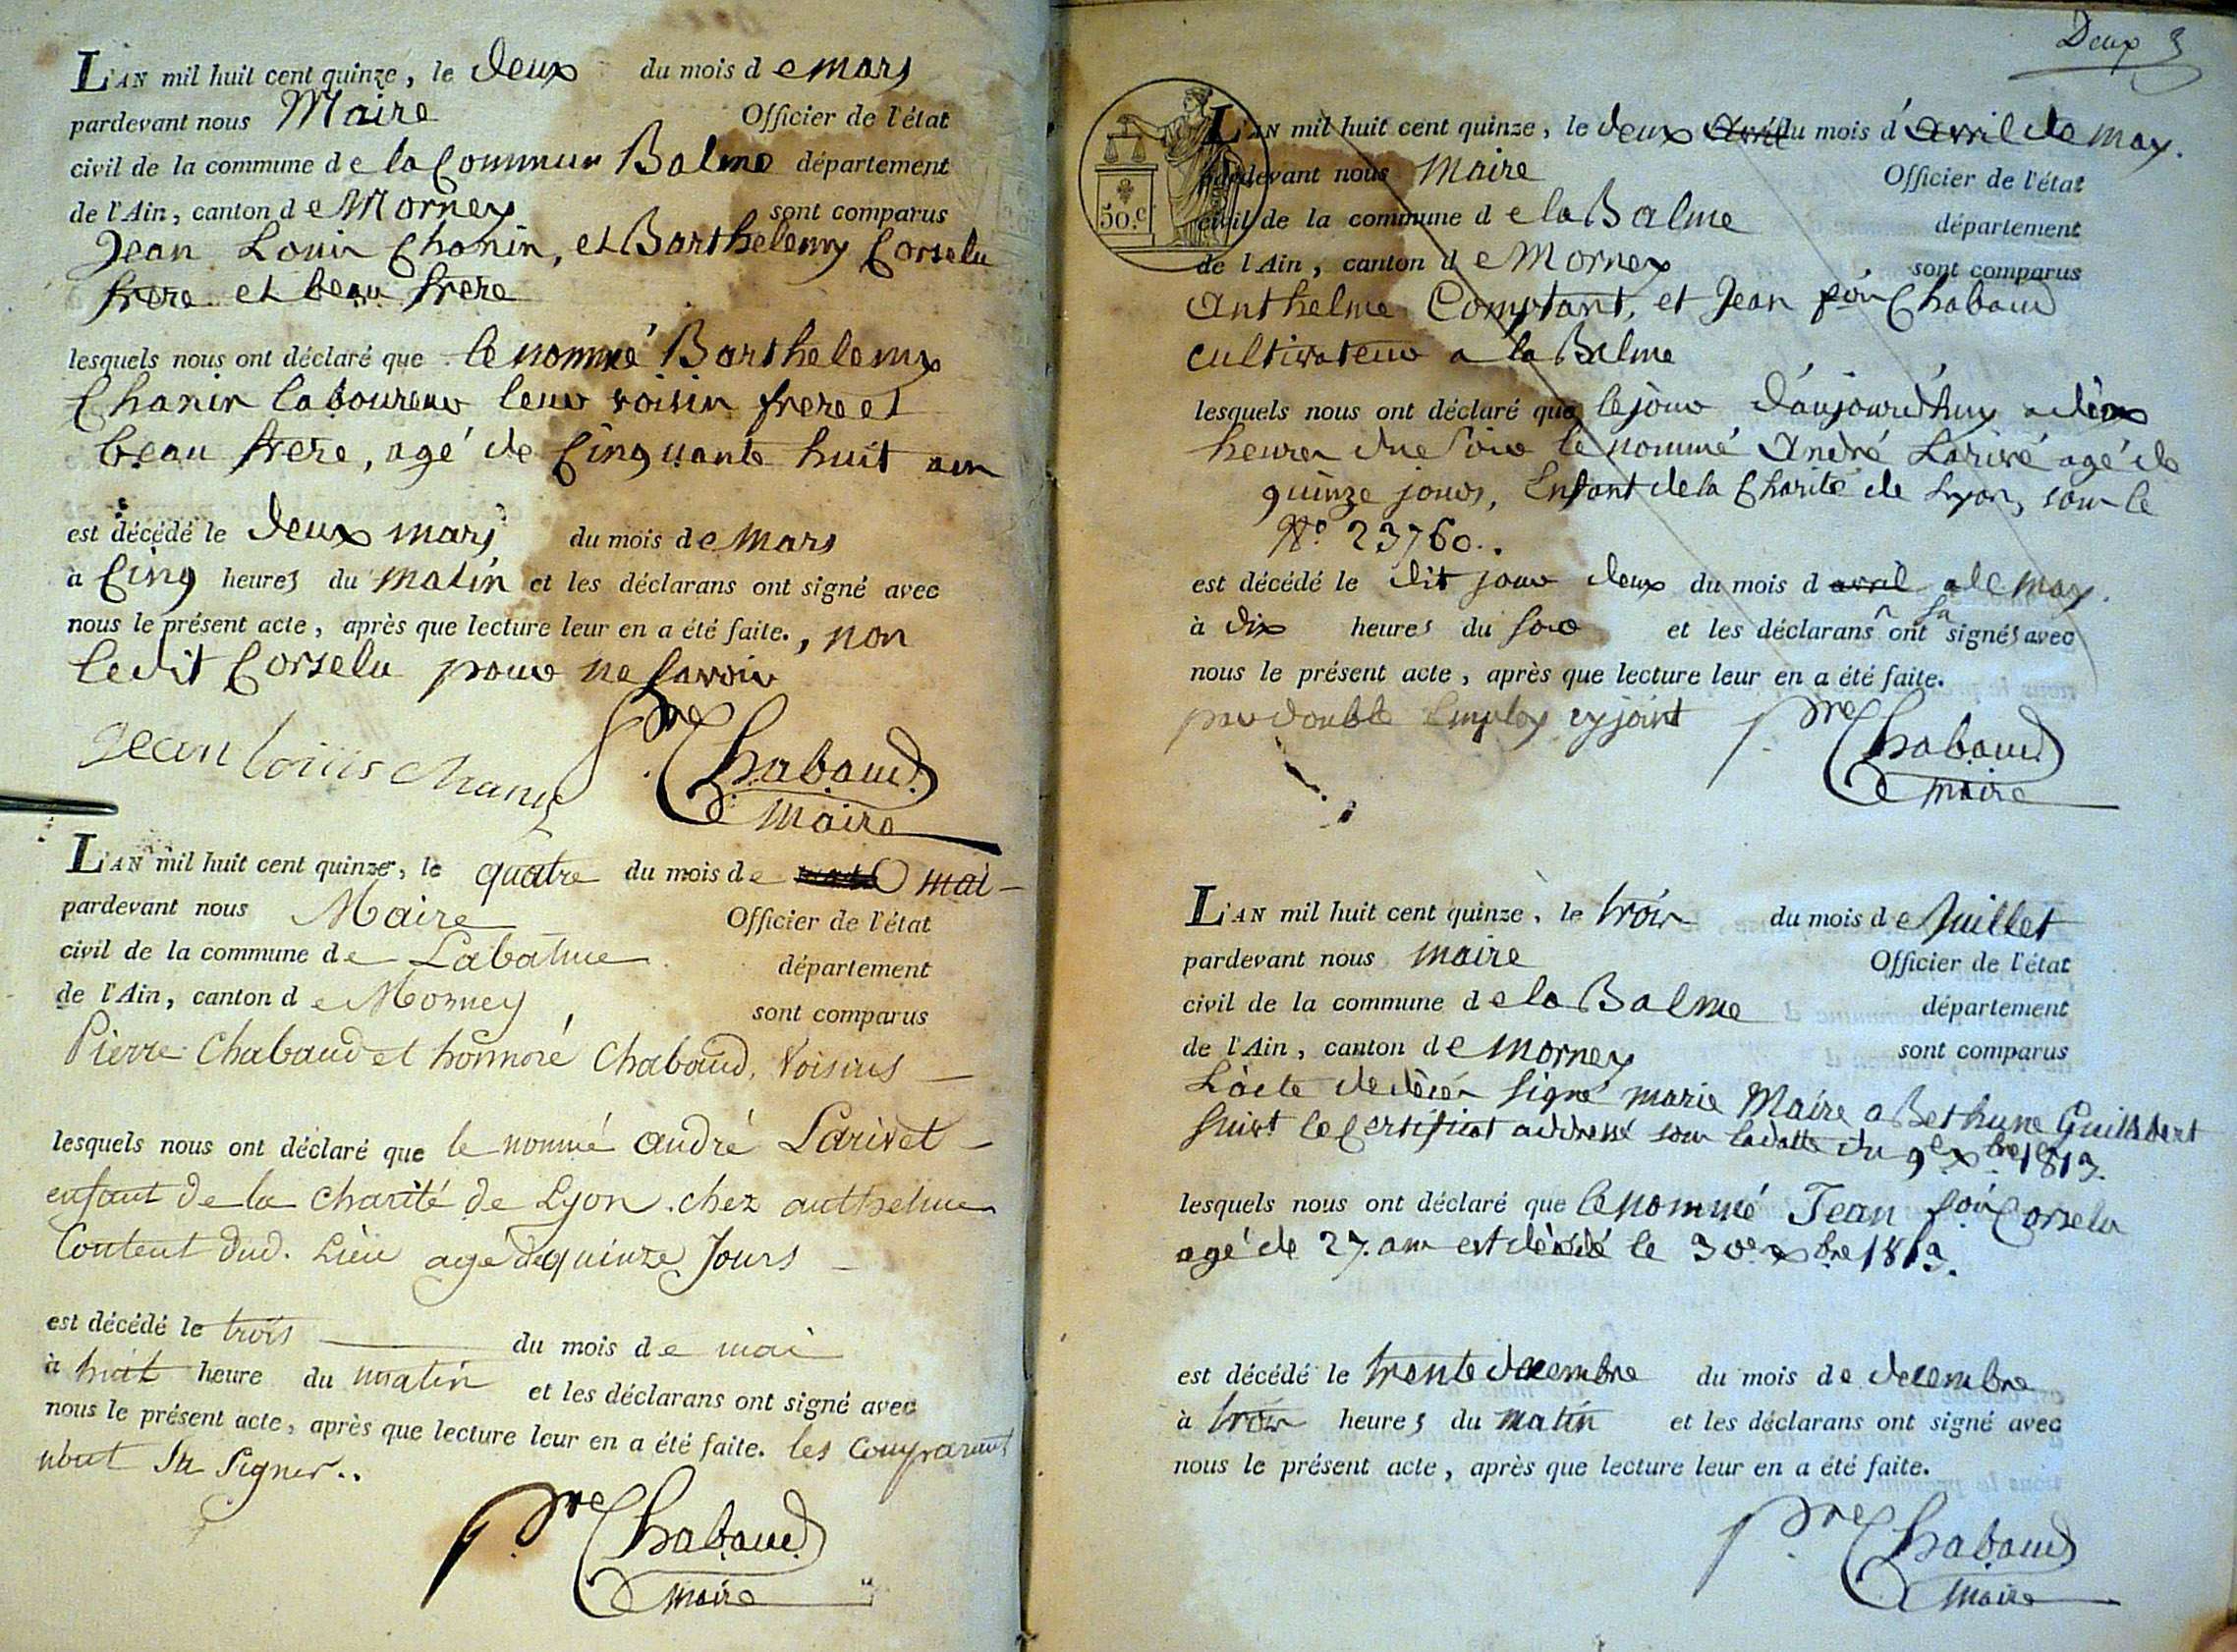 L'AN mil huit cent quinze, le deux du mois de mars
pardevant nous Maire Officier de l'état
civil de la commune de la Commun Balme département
de l'Ain, canton de Mornex sont comparus
Jean Louis Chanin, et Barthelemy Corselu
frere et beau frere
lesquels nous ont déclaré que le nommé Barthelemy
Chanin laboureur leur voisin frere et
beau frere, agé de Cinquante huit ans
est décédé le deux mars du mois de Mars
à Cinq heures du matin et les déclarans ont signé avec
nous le présent acte, après que lecture leur en a été faite., non
ledit Corselu pour ne savoir
Jean louiis chanin
Pre Chabaud
Maire
L'AN mil huit cent quinze, le quatre du mois de mai
pardevant nous Maire Officier de l'état
civil de la commune de Labalme département
de l'Ain, canton de Morney sont comparus
Pierre Chabaud et honnoré Chabaud, Voisins
lesquels nous ont déclaré que le nommé andré Larivet
enfant de la charité de Lyon. chez anthelme
Content dud. Lieu agé de quinze Jours
est décédé le trois du mois de mai
à huit heure du matin et les déclarans ont signé avec
nous le présent acte, après que lecture leur en a été faite. les comparants
n'ont su signer..
Pre Chabaud
maire
Deux
50.c
L'AN mil huit cent quinze, le deux avril du mois d'avril de may.
pardevant nous Maire Officier de l'état
civil de la commune de la Balme département
de l'Ain, canton de Mornex sont comparus
Anthelme Comptant, et Jean fois Chabaud
cultivateur a la Balme
lesquels nous ont déclaré que le jour d'aujourd'huy a deux
heures du soir le nommé André Larivé agé de
quinze jours, Enfant de la Charité de Lyon, sous le
No 23760..
est décédé le dit jour deux du mois d avril de may.
à dix heures du soir et les déclarans n ont sa signés avec
nous le présent acte, après que lecture leur en a été faite.
par double employ cy joint
Pre Chabaud
maire
L'AN mil huit cent quinze, le trois du mois de Juillet
pardevant nous maire Officier de l'état
civil de la commune de la Balme département
de l'Ain, canton de Mornex sont comparus
L'acte de décès signé marie Maire a Bethune Guillibert
suivt le Certificat addressé sous la datte du 9e xbre 1813.
lesquels nous ont déclaré que le nommé Jean fois Corselu
agé de 27. ans est décédé le 30e xbre 1813.
est décédé le trente decembre du mois de decembre
à trois heures du matin et les déclarans ont signé avec
nous le présent acte, après que lecture leur en a été faite.
Pre Chabaud
maire